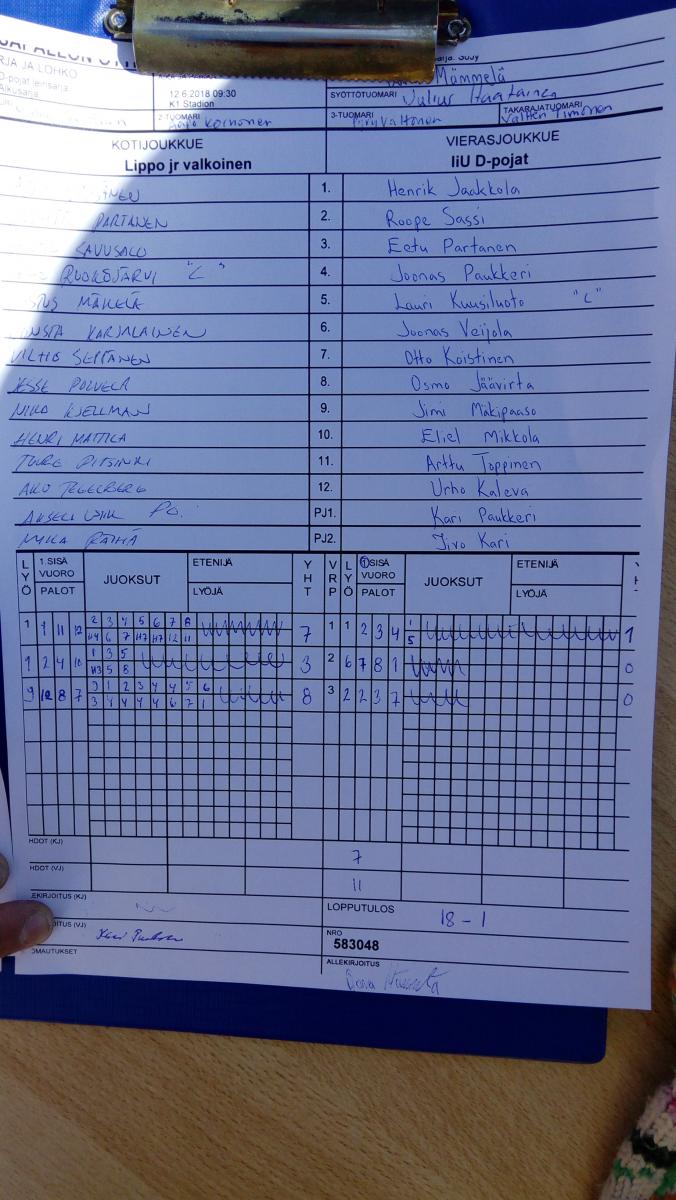 RJA JA LOHKO
D-pojat leirisarja
Alkusarja
12.6.2018 09:30
K1 Stadion
Mämmelä
SYÖTTÖTUOMARI Julius Haatainen
2-TUOMARI
3-TUOMARI
TAKARAJATUOMARI
KOTIJOUKKUE VIERASJOUKKUE
Lippo jr valkoinen IiU D-pojat
1. Henrik Jaakkola
PARTANEN 2. Roope Sassi
SAVUSALO 3. Eetu Partanen
RUOKOJÄRVI "C" 4. Joonas Paukkeri
MÄKELÄ 5. Lauri Kuusiluoto "C"
KARJALAINEN 6. Joonas Veijola
VILHO SEPPÄNEN 7. Otto Koistinen
JESSE POLVELA 8. Osmo Jäävirta
NIKO KJELLMAN 9. Jimi Mäkipaaso
HENRI MATTILA 10. Eliel Mikkola
TUURE PITSINKI 11. Arttu Toppinen
AKU TEGELBERG 12. Urho Kaleva
AKSELI PJ1. Kari Paukkeri
MIKA RÄIHÄ PJ2. Jivo Kari
LYÖ 1.SISÄ VUORO PALOT JUOKSUT ETENIJÄ LYÖJÄ YHT VRP LYÖ 1 SISÄ VUORO PALOT JUOKSUT ETENIJÄ LYÖJÄ
2 3 4 5 6 7 8
1 1 11 12 H4 6 7 H7 H7 12 11 7 1 1 2 3 4 1 5 1
1 3 5
1 2 4 10 H3 5 8 3 2 6 7 8 1 0
3 1 2 3 4 4 5 6
9 12 8 7 3 4 4 4 4 6 7 1 8 3 2 2 3 7 0
HDOT (KJ) 7
HDOT (VJ) 11
EKIRJOITUS (KJ) LOPPUTULOS 18 - 1
OITUS (VJ) NRO
583048
OMAUTUKSET ALLEKIRJOITUS